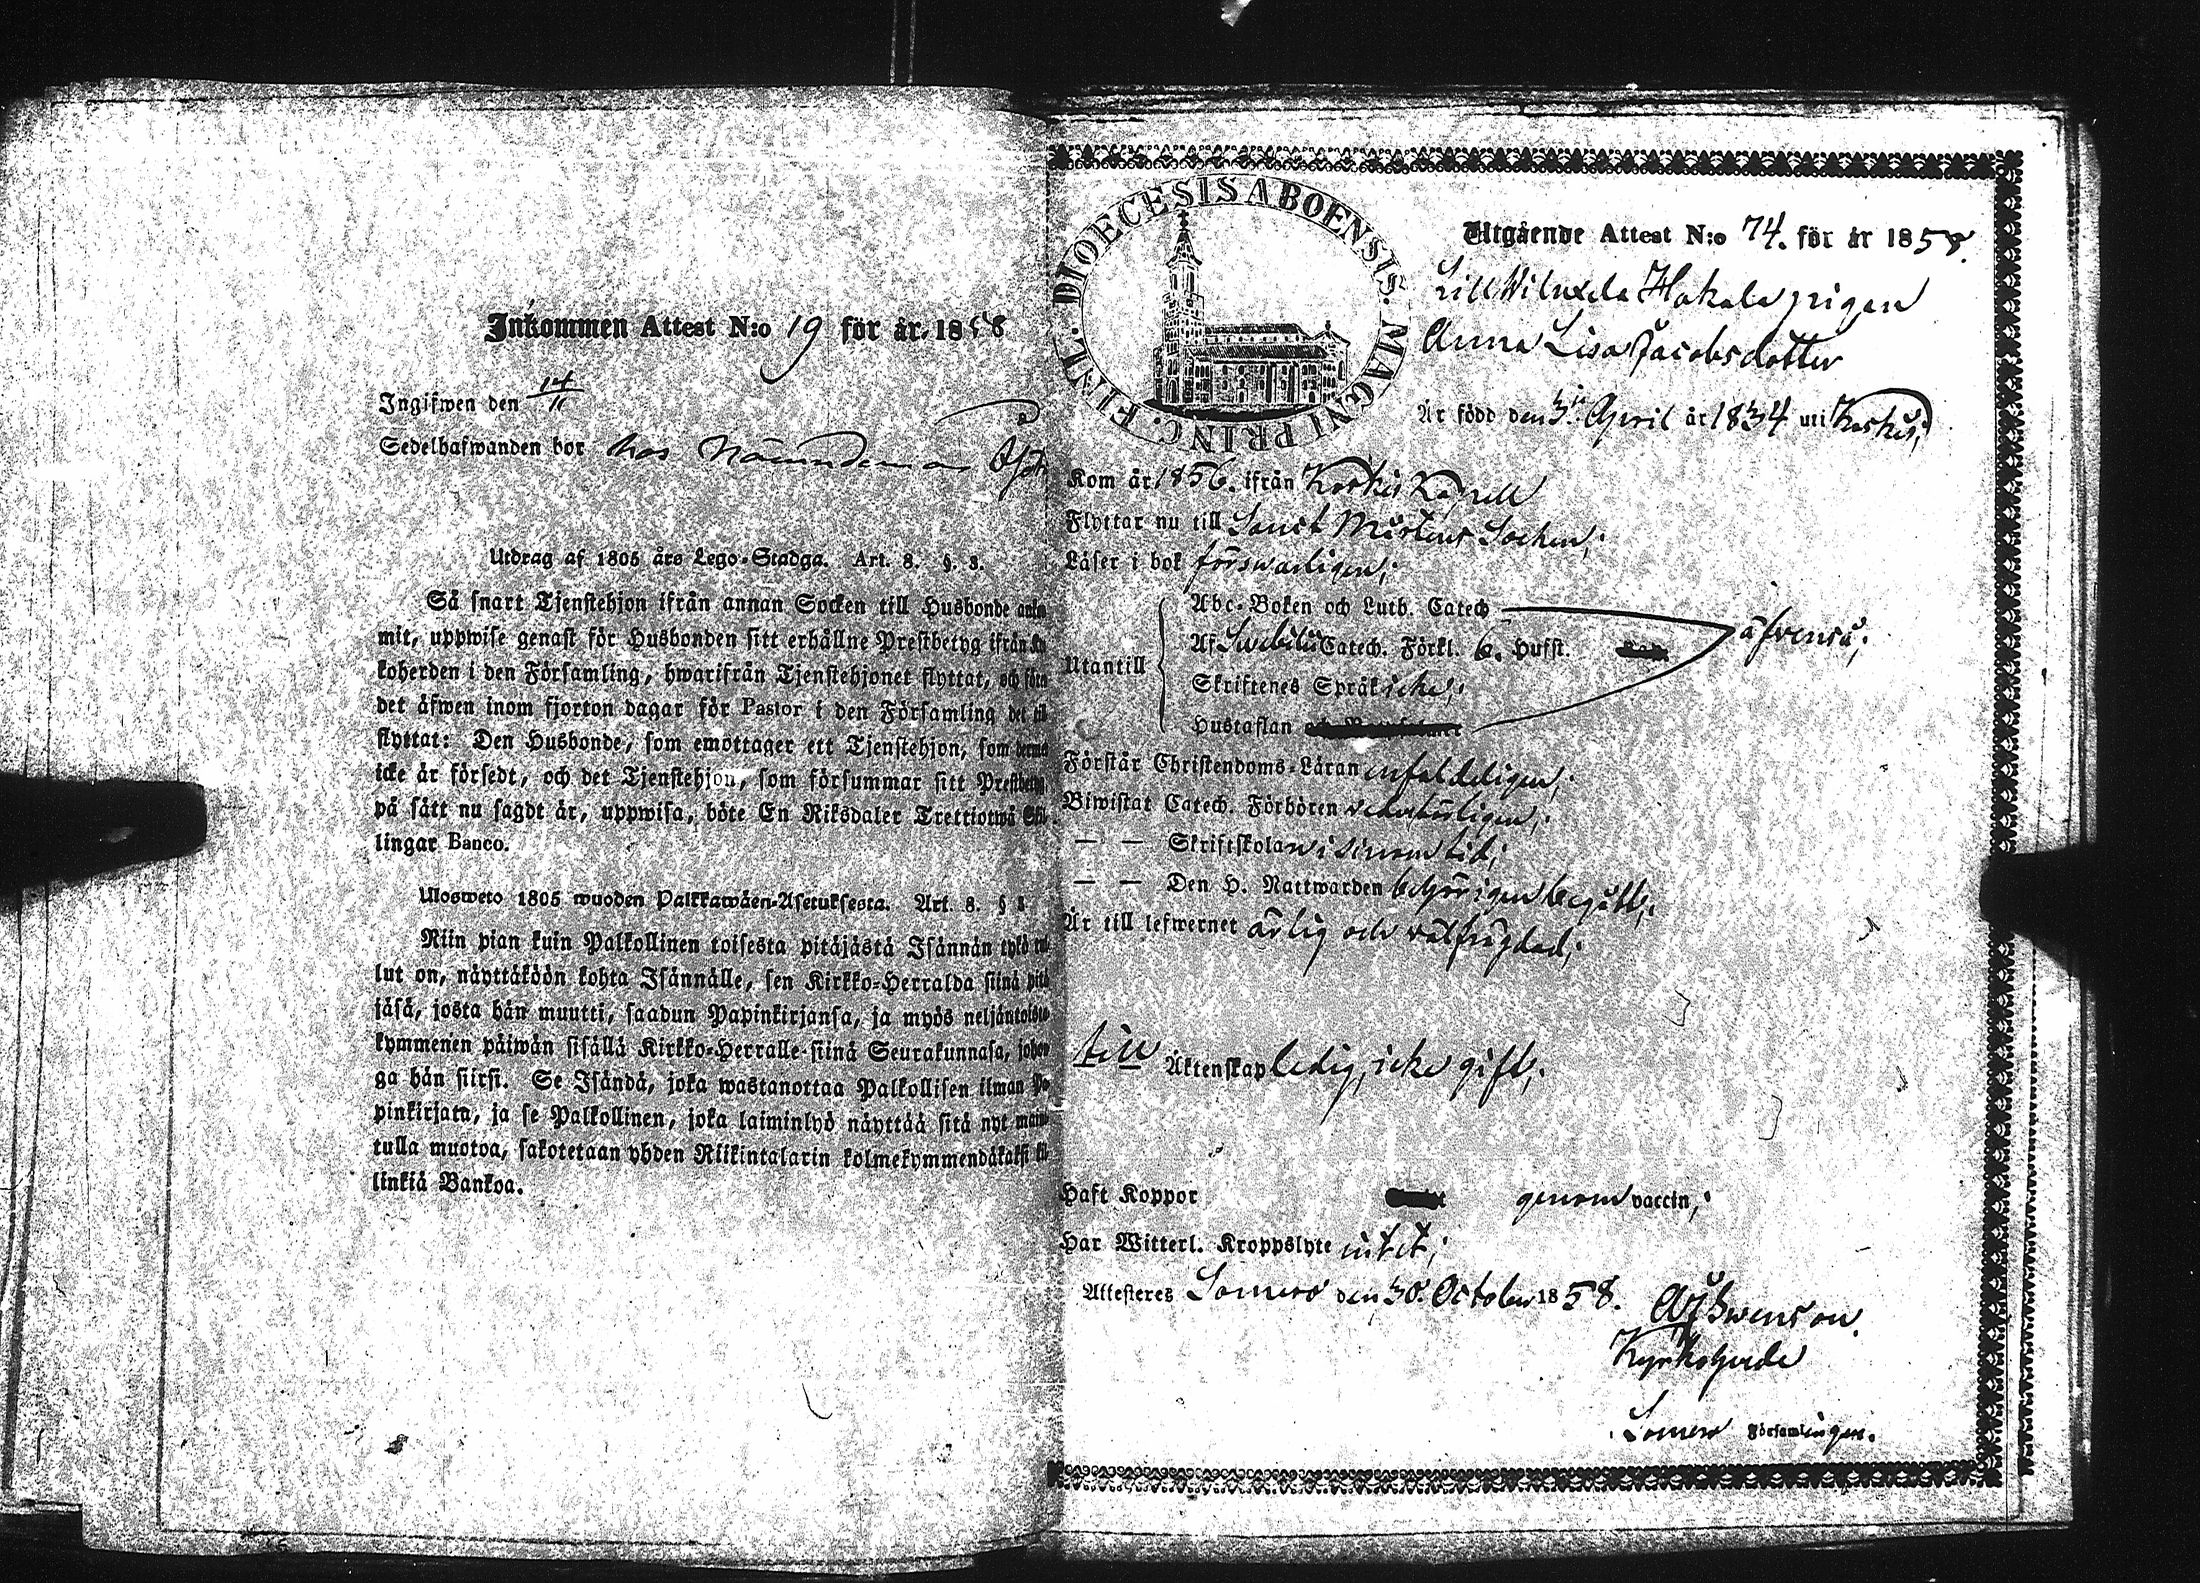 Inkommen Attest N:o 19 för år 1858
Ingifwen den 14/11
Sedelhafwanden bor hos Nämndeman
Utdrag af 1805 års Lego-Stadga. Art. 8. §. 3.
Så snart Tjenstehjon ifrån annan Socken till Husbonde
mit, uppwise genast för Husbonden sitt erhållne Prestbetyg ifrån
koherden i den Församling, hwarifrån Tjenstehjonet flyttat, och
det äfwen inom fjorton dagar för Pastor i den Församling det till
flyttat: Den Husbonde, som emottager ett Tjenstehjon, som
icke är försedt, och det Tjenstehjon, som försummar sitt
på sätt nu sagdt är, uppwisa, böte En Riksdaler Trettiotwå
lingar Banco.
Ulosweto 1805 wuoden Palkkawäen-Asetuksesta. Art. 8. §
Niin pian kuin Palkollinen toisesta pitäjästä Isännän tykö
lut on, näyttäköön kohta Isännälle, sen Kirkko-Herralda siinä
jäsä, josta hän muutti, saadun Papinkirjansa, ja myös neljäntoista
kymmenen päiwän sisällä Kirkko-Herralle siinä Seurakunnasa,
ga hän siirsi. Se Isändä, joka wastanottaa Palkollisen ilman
pinkirjata, ja se Palkollinen, joka laiminlyö näyttää sitä nyt
tulla muotoa, sakotetaan yhden Riikintalarin kolmekymmendäkaksi
linkiä Bankoa.
DIOECESIS ABOENSIS. MAGNI PRINC. FINL.
Utgående Attest N:o 74. för år 1858.
Hakala pigan
Anna Lisa Jacobsdotter
Är född den 3. April år 1834 uti Koskis;
Kom år 1856. ifrån Koskis Kapell
Flyttar nu till Sanct Mårtens Socken;
Läser i bok förswarligen;
Utantill
Abc-Boken och Luth. Catech
Af Swebilii Catech. Förkl. 6. Hufst.
äfvenså;
Skriftenes Språk icke;
Hustaflan
Förstår Christendoms-Läran enfaldeligen;
Biwistat Catech. Förhören wederbörligen;
— — Skriftskolan i sinom tid;
— — Den H. Nattwarden behörigen begått;
Är till lefwernet ärlig och wälfrägdad;
till Äktenskap ledig, icke gift;
Haft Koppor genom vaccin;
Har Witterl. Kroppslyte intet;
Attesteres Somero den 30. October 1858.
Swenson
Kyrkoherde
Somero Församlingen.